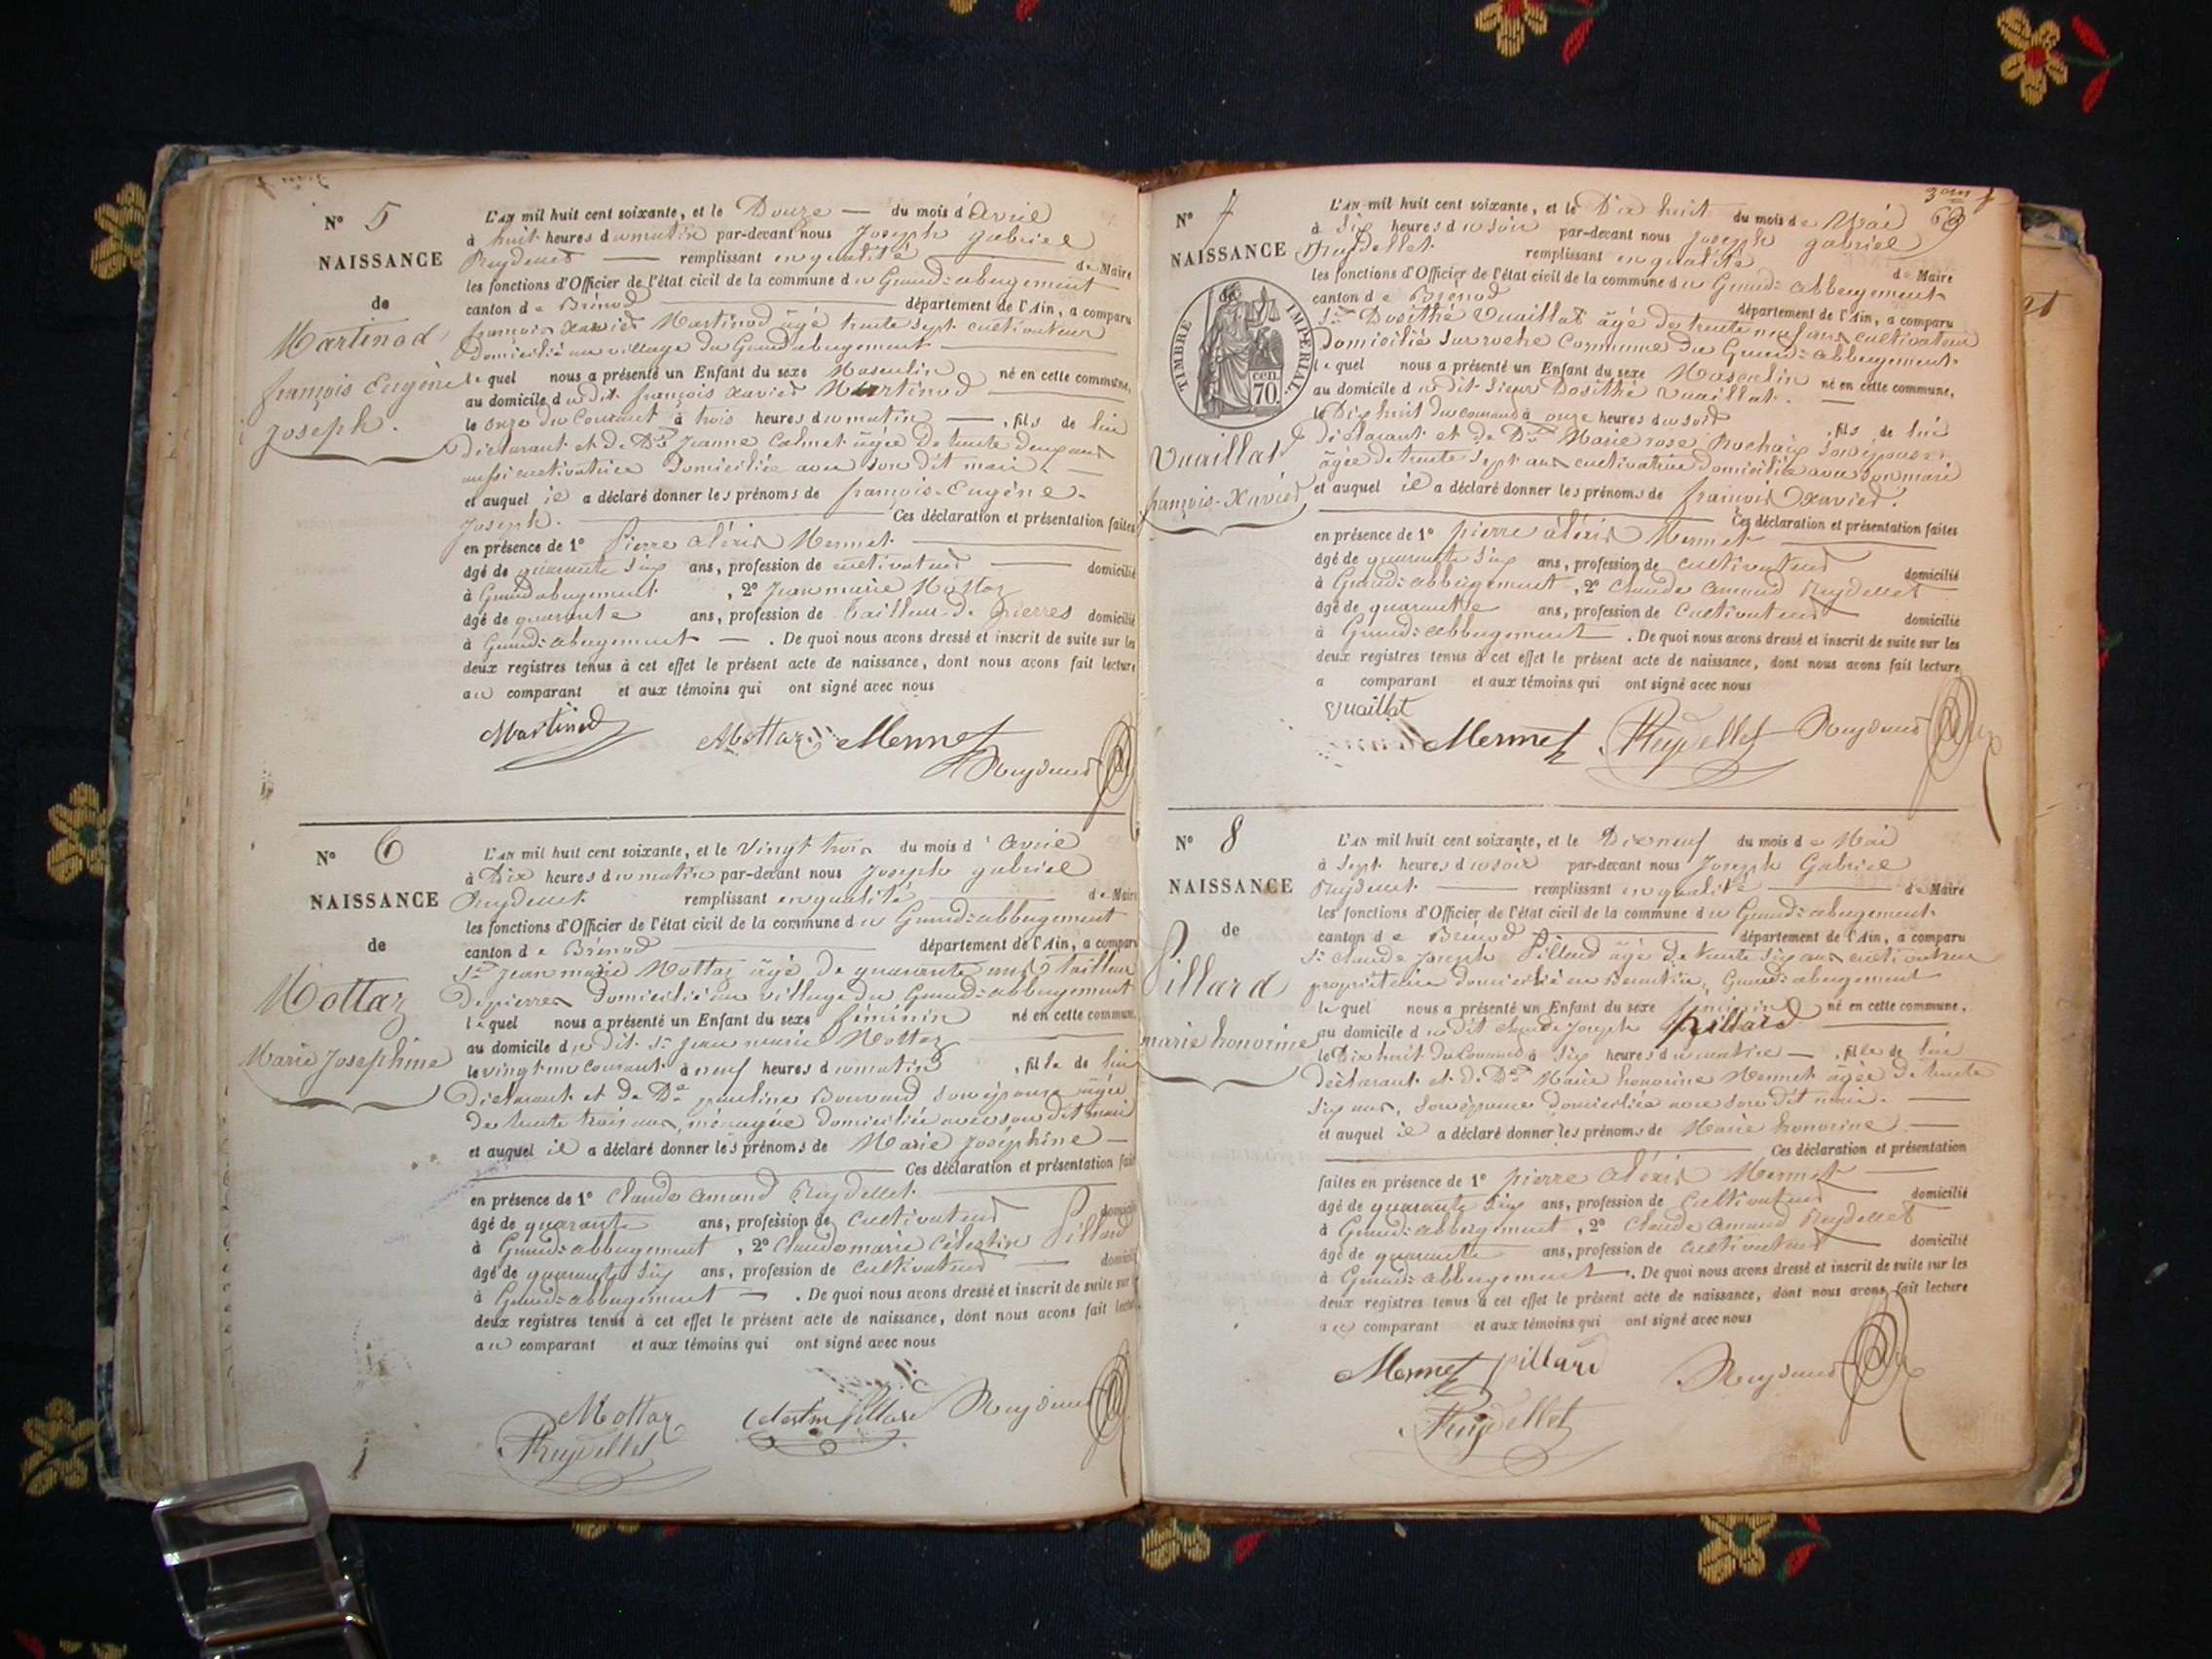 N° 5
NAISSANCE
de
Martinod
françois Eugène
Joseph.
L'AN mil huit cent soixante, et le Douze — du mois d'Avril
à huit heures du matin par-devant nous Joseph gabriel
Reydellet — remplissant en qualité de Maire
les fonctions d'Officier de l'état civil de la commune du Grand-abergement
canton de Brénod département de l'Ain, a comparu
françois xavier Martinod âgé trente sept cultivateur
Domicilié au village du Grand abergement
lequel nous a présenté un Enfant du sexe Masculin né en cette commune,
au domicile du dit françois xavier Martinod
le onze du Courant à trois heures du matin —, fils de lui
Déclarant et de De Jeanne Calmet âgée de trente deux ans
aussi cultivatrice Domiciliée avec son dit mari. —
et auquel il a déclaré donner les prénoms de françois-Eugène-
Joseph. Ces déclaration et présentation faites
en présence de 1° pierre aléxis Mermet
âgé de quarante six ans, profession de cultivateur domicilié
à Grand abergement, 2° Jean marie Mottaz
âgé de quarante ans, profession de tailleur de pierres domicilié
à Grand-abergement —. De quoi nous avons dressé et inscrit de suite sur les
deux registres tenus à cet effet le présent acte de naissance, dont nous avons fait lecture
au comparant et aux témoins qui ont signé avec nous
Martinod Mottaz Mermet
Reydellet
N° 6
NAISSANCE
de
Mottaz
Marie Josephine
L'AN mil huit cent soixante, et le vingt trois du mois d'avril
à Dix heures du matin par-devant nous Joseph gabriel
Reydellet remplissant en qualité de Maire
les fonctions d'Officier de l'état civil de la commune du Grand-abbergement
canton de Brénod département de l'Ain, a comparu
Sr Jean marie Mottaz âgé de quarante ans tailleur
De pierres domicilié au village du Grand-abbergement
lequel nous a présenté un Enfant du sexe féminin né en cette commune,
au domicile du dit Sr Jean marie Mottaz
le vingt un courant à neuf heures du matin, fille de lui
Déclarant et de De pauline Bouvard son épouse âgée
de trente trois ans, ménagée domiciliée avec son dit mari
et auquel il a déclaré donner les prénoms de Marie Joséphine —
Ces déclaration et présentation fait
en présence de 1° Claude amand Reydellet
âgé de quarante ans, profession de cultivateur domicilié
à Grand-abbergement, 2° Claude marie Célestin Pillard
âgé de quarante six ans, profession de cultivateur — domicilié
à Grand-abbergement —. De quoi nous avons dressé et inscrit de suite sur
deux registres tenus à cet effet le présent acte de naissance, dont nous avons fait lecture
au comparant et aux témoins qui ont signé avec nous
Mottaz Celestin pillard Reydellet
Reydellet
3em f
69
N° 7
NAISSANCE
TIMBRE IMPERIAL
70 cen.
Vuaillat
françois-Xavier
L'AN mil huit cent soixante, et le Dix huit du mois de Mai
à Six heures du soir par-devant nous Joseph gabriel
Reydellet remplissant en qualité de Maire
les fonctions d'Officier de l'état civil de la commune du Grand-abbergement
canton de Brénod département de l'Ain, a comparu
Sr Dosithé Vuaillat âgé de trente neuf ans cultivateur
Domicilié Sur roche Commune du Grand-abbergement.
lequel nous a présenté un Enfant du sexe Masculin né en cette commune,
au domicile du dit Sieur Dosithé Vuaillat. —
le Dix huit du courant à onze heures du soir, fils de lui
Déclarant et de De Marie rose Rochaix Son épouse
âgée de trente sept ans cultivatrice domiciliée avec son mari
et auquel il a déclaré donner les prénoms de françois Xavier.
Ces déclaration et présentation faites
en présence de 1° pierre aléxis Mermet
âgé de quarante six ans, profession de cultivateur domicilié
à Grand-abbergement, 2° Claude amand Reydellet
âgé de quarante ans, profession de Cultivateur domicilié
à Grand-abbergement. De quoi nous avons dressé et inscrit de suite sur les
deux registres tenus à cet effet le présent acte de naissance, dont nous avons fait lecture
a comparant et aux témoins qui ont signé avec nous
Vuaillat
Mermet Reydellet Reydellet
N° 8
NAISSANCE
de
Pillard
marie honorine
L'AN mil huit cent soixante, et le Dix neuf du mois de Mai
à Sept heures du soir par-devant nous Joseph Gabriel
Reydellet — remplissant en qualité — de Maire
les fonctions d'Officier de l'état civil de la commune du Grand-abergement.
canton de Brénod département de l'Ain, a comparu
Sr Claude Joseph Pillard âgé de trente six ans cultivateur
propriétaire domicilié en Grand-abergement
lequel nous a présenté un Enfant du sexe féminin né en cette commune,
au domicile du dit Claude Joseph pillard
le Dix huit du Courant à Six heures du matin —, fille de lui
Déclarant et de De Marie honorine Mermet âgée de trente
six ans, son épouse domiciliée avec son dit mari. —
et auquel il a déclaré donner les prénoms de Marie honorine —
Ces déclaration et présentation
faites en présence de 1° pierre aléxis Mermet
âgé de quarante six ans, profession de Cultivateur domicilié
à Grand-abbergement, 2° Claude amand Reydellet
âgé de quarante ans, profession de Cultivateur domicilié
à Grand-abbergement. De quoi nous avons dressé et inscrit de suite sur les
deux registres tenus à cet effet le présent acte de naissance, dont nous avons fait lecture
au comparant et aux témoins qui ont signé avec nous
Mermet pillard Reydellet
Reydellet